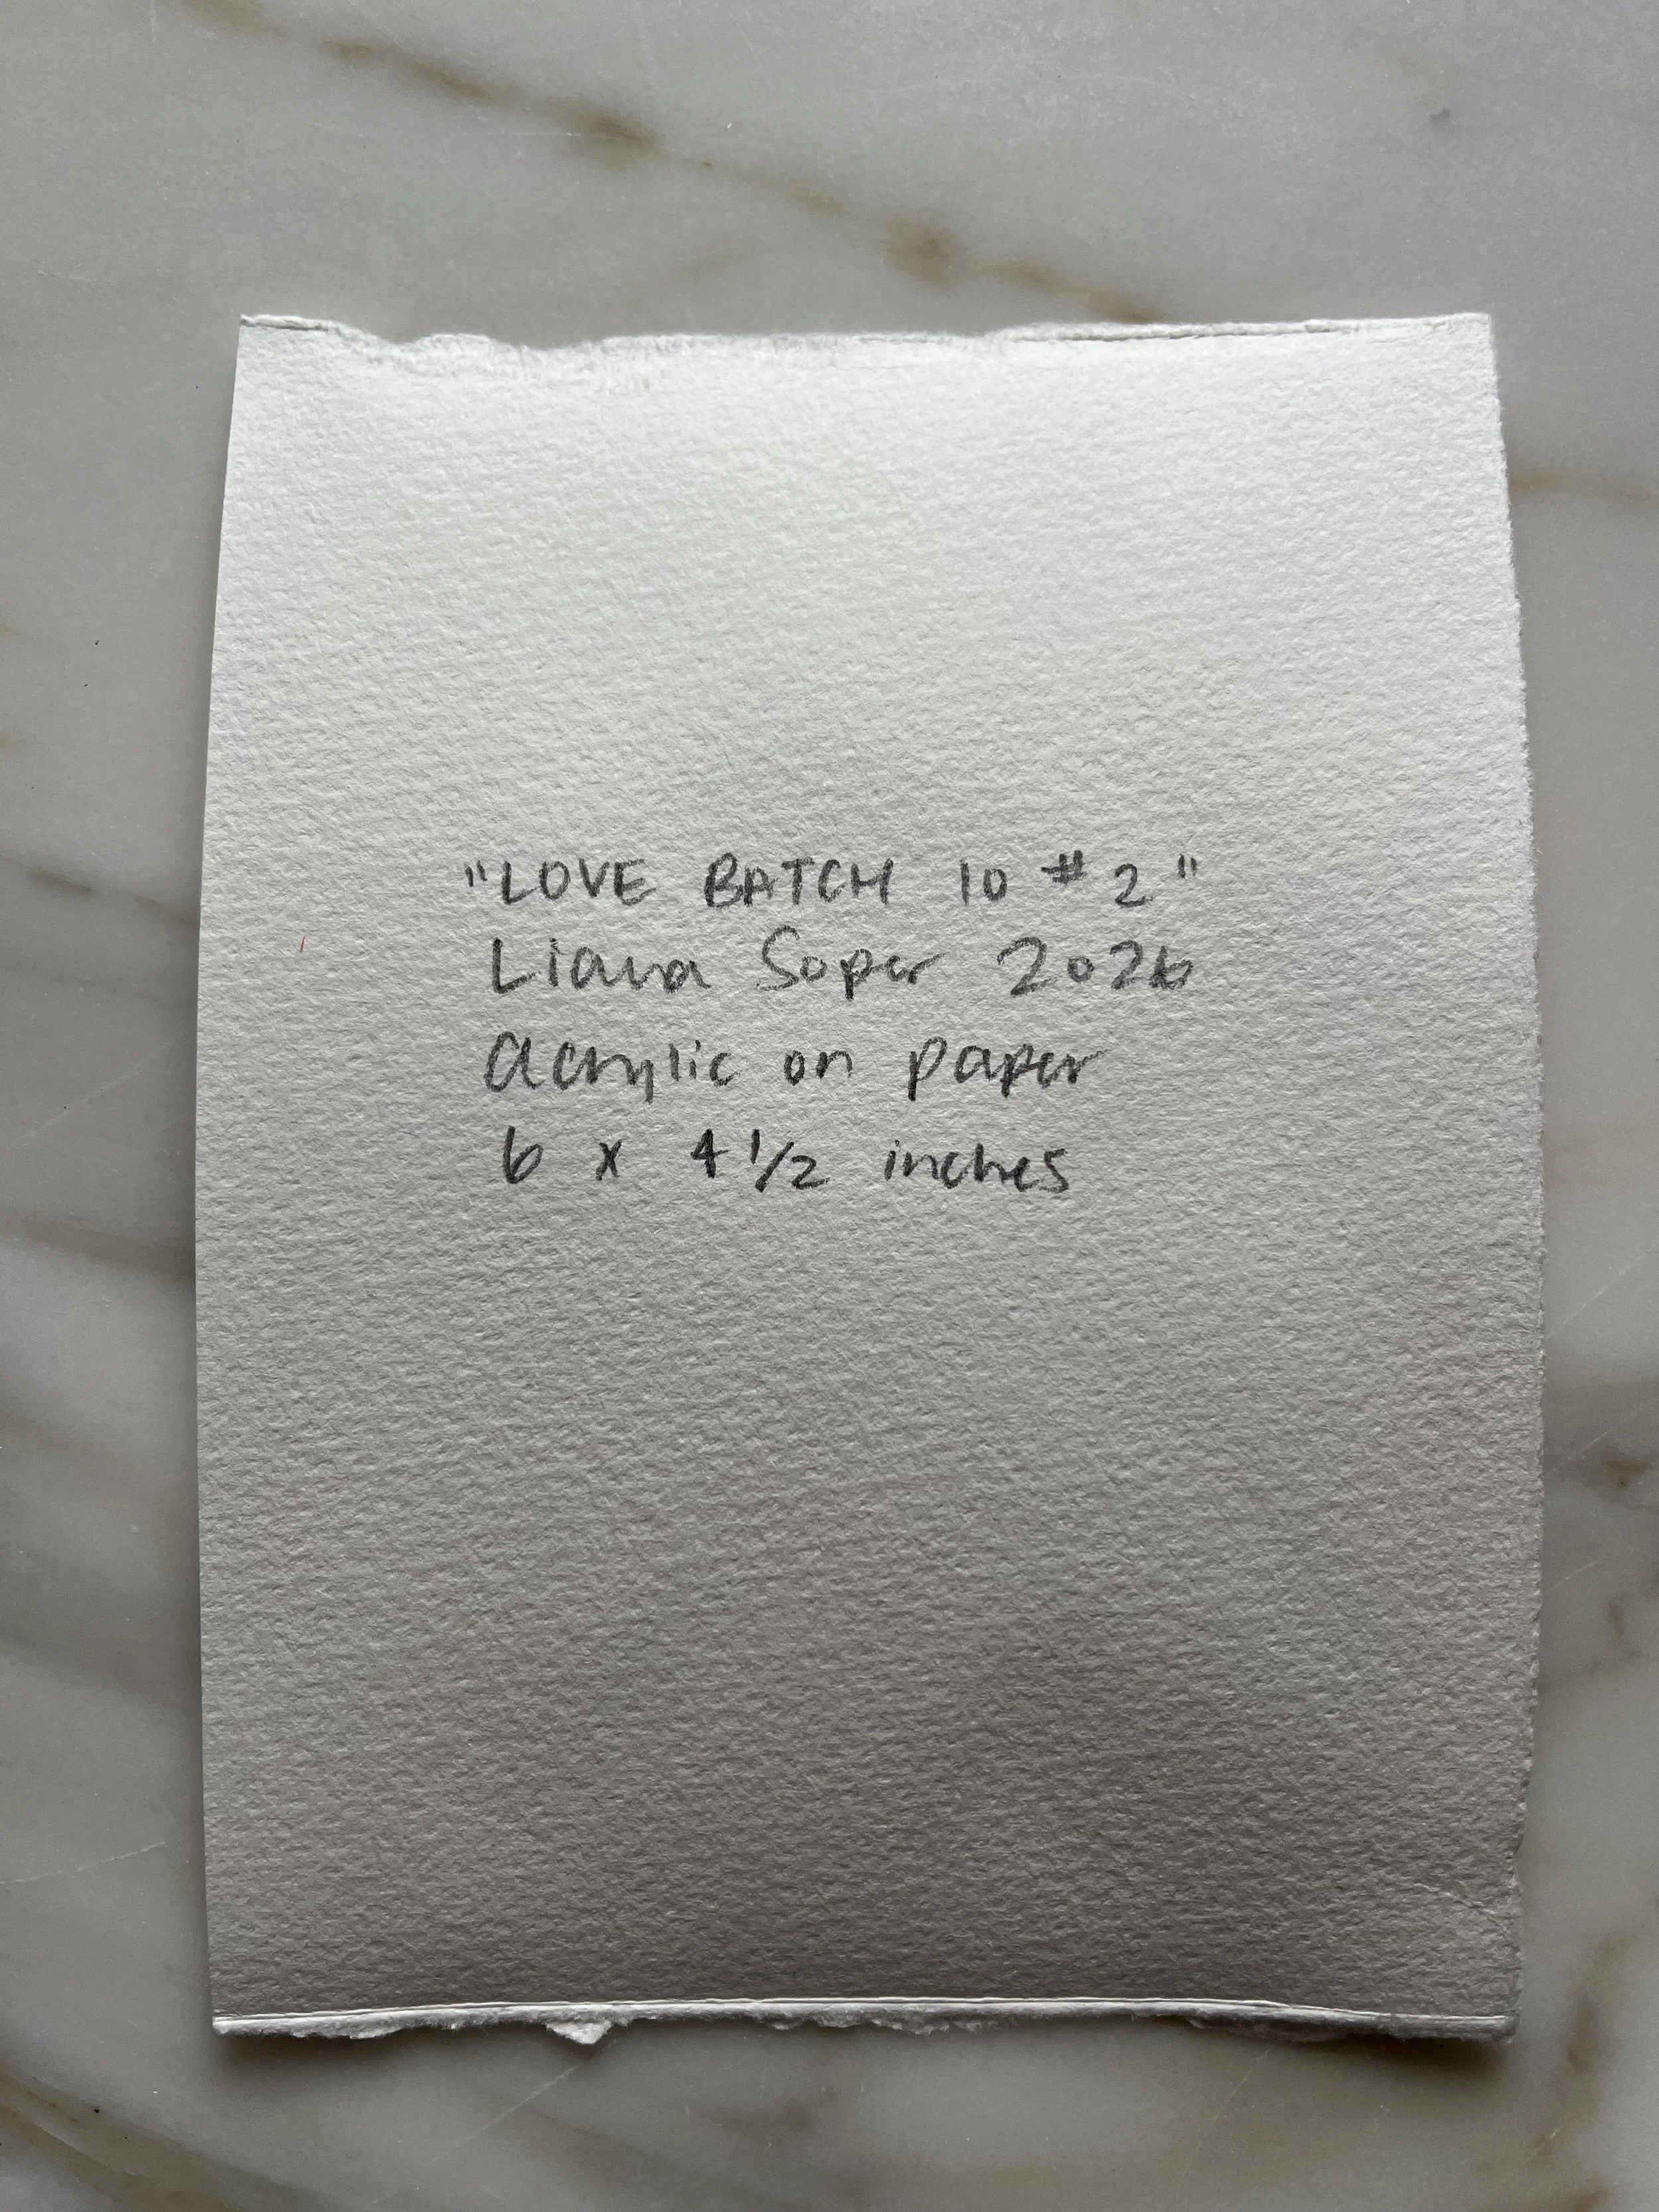 "LOVE BATCH 10 #2"
Liana Soper 2026
acrylic on paper
6 x 4 1/2 inches